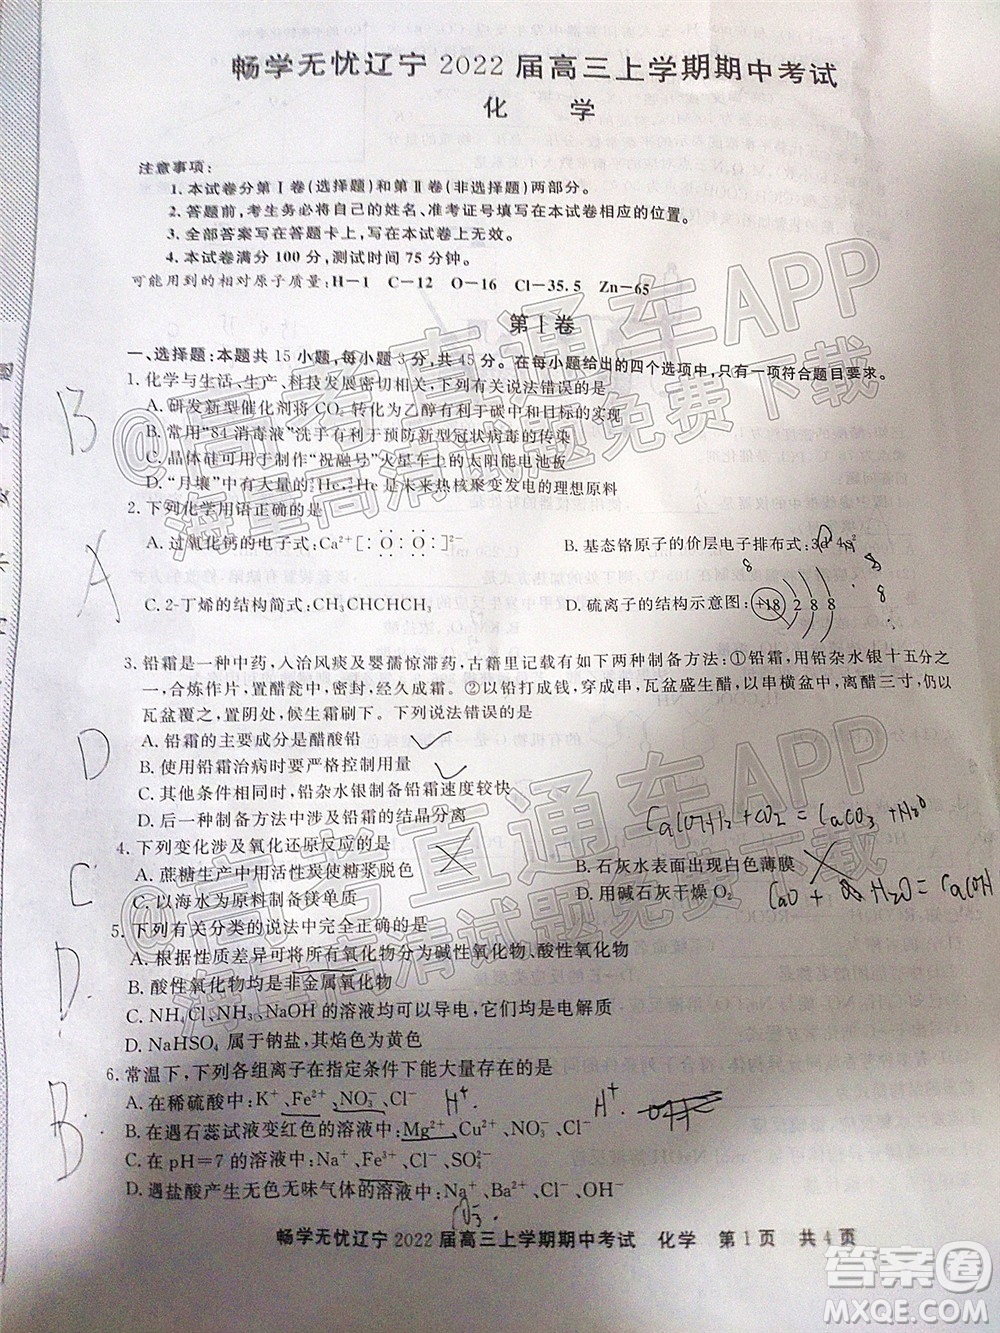 畅学无忧辽宁 2022 届高三上学期期中考试
化 学
注意事项:
1.本试卷分第Ⅰ卷(选择题)和第Ⅱ卷(非选择题)两部分。
2.答题前,考生务必将自己的姓名、准考证号填写在本试卷相应的位置。
3.全部答案写在答题卡上,写在本试卷上无效。
4.本试卷满分 100 分,测试时间 75 分钟。
可能用到的相对原子质量:H-1 C-12 O-16 Cl-35.5 Zn-65
第Ⅰ卷
一、选择题:本题共 15 小题,每小题 3 分,共 45 分。在每小题给出的四个选项中,只有一项符合题目要求。
B
1.化学与生活、生产、科技发展密切相关,下列有关说法错误的是
A.研发新型催化剂将 CO₂ 转化为乙醇有利于碳中和目标的实现
B.常用“84 消毒液”洗手有利于预防新型冠状病毒的传染
C.晶体硅可用于制作“祝融号”火星车上的太阳能电池板
D.“月壤”中含有大量的 ³₂He,³₂He是未来热核聚变发电的理想原料
A
2.下列化学用语正确的是
A.过氧化钙的电子式:Ca²⁺[:Ö:Ö:]²⁻
B.基态铬原子的价层电子排布式:3d⁴4s²
C.2-丁烯的结构简式:CH₃CHCHCH₃
D.硫离子的结构示意图: +18 2 8 8
D
3.铅霜是一种中药,入治风痰及婴孺惊滞药,古籍里记载有如下两种制备方法:①铅杂水银十五分之
一,合炼作片,置醋瓮中,密封,经久成霜。②以铅打成钱,穿成串,瓦盆盛生醋,以串横盆中,离醋三寸,仍以
瓦盆覆之,置阴处,候生霜刷下。下列说法错误的是
A.铅霜的主要成分是醋酸铅
B.使用铅霜治病时要严格控制用量
C.其他条件相同时,铅杂水银制备铅霜速度较快
D.后一种制备方法中涉及铅霜的结晶分离
Ca(OH)₂+CO₂=CaCO₃+H₂O
C
4.下列变化涉及氧化还原反应的是
A.蔗糖生产中使用活性炭使糖汁脱色
B.石灰水表面出现白色薄膜
C.以海水为原料制备镁单质
D.用碱石灰干燥 O₂
D
5.下列有关分类的说法中完全正确的是
A.根据性质差异可将所有氧化物分为碱性氧化物、酸性氧化物
B.酸性氧化物均是非金属氧化物
C.NH₄Cl、NH₃、NaOH 的溶液均可以导电,它们均是电解质
D.NaHSO₄ 属于钠盐,其焰色为黄色
B
6.常温下,下列各组离子在指定条件下能大量存在的是
A.在稀硫酸中:K⁺、Fe²⁺、NO₃⁻、Cl⁻ H⁺ H⁺
B.在遇石蕊试液变红色的溶液中:Mg²⁺、Cu²⁺、NO₃⁻、Cl⁻
C.在 pH=7 的溶液中:Na⁺、Fe³⁺、Cl⁻、SO₄²⁻
D.遇盐酸产生无色无味气体的溶液中:Na⁺、Ba²⁺、Cl⁻、OH⁻
畅学无忧辽宁 2022 届高三上学期期中考试 化学 第 1 页 共 4 页
@高考直通车APP
海量高清试题免费下载
@高考直通车APP
海量高清试题免费下载
答案圈
MXQE.COM